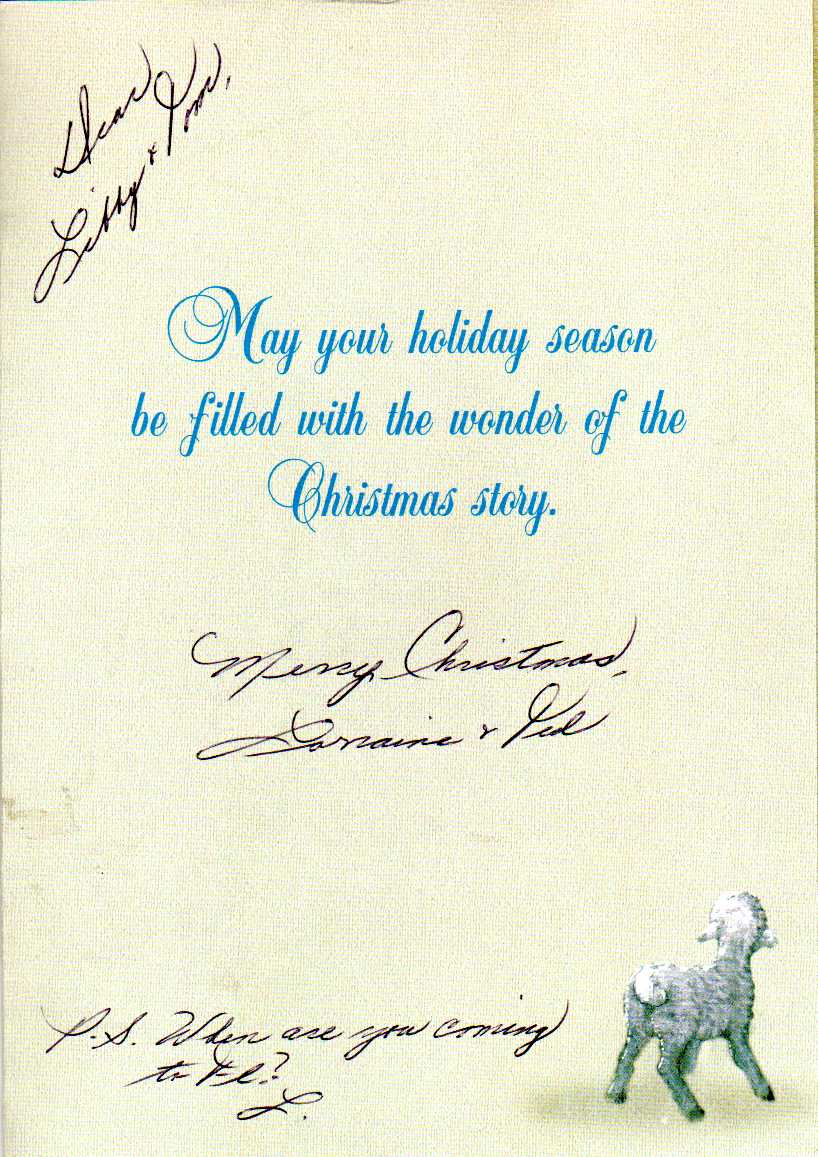 Dear
Libby & Tom,
May your holiday season
be filled with the wonder of the
Christmas story.
Merry Christmas,
Lorraine & Ted
P.S. When are you coming
to Fl?
L.